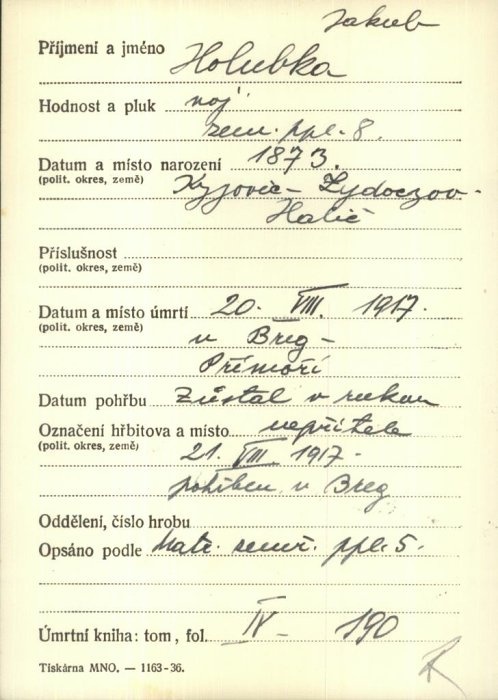 Jakub
Příjmení a jméno Holubka
Hodnost a pluk voj.
zem. ppl. 8.
Datum a místo narození 1873.
(polit. okres, země) Kyjovic - Zydoczov -
Halič
Příslušnost
(polit. okres, země)
Datum a místo úmrtí 20. VIII. 1917.
(polit. okres, země) u Breg -
Přímoří
Datum pohřbu Zůstal v rukou
Označení hřbitova a místo nepřítele
(polit. okres, země) 21. VIII. 1917 -
pohřben u Breg
Oddělení, číslo hrobu
Opsáno podle Matr. zemř. ppl. 5.
Úmrtní kniha: tom, fol. IV - 190
Tiskárna MNO. — 1163-36.